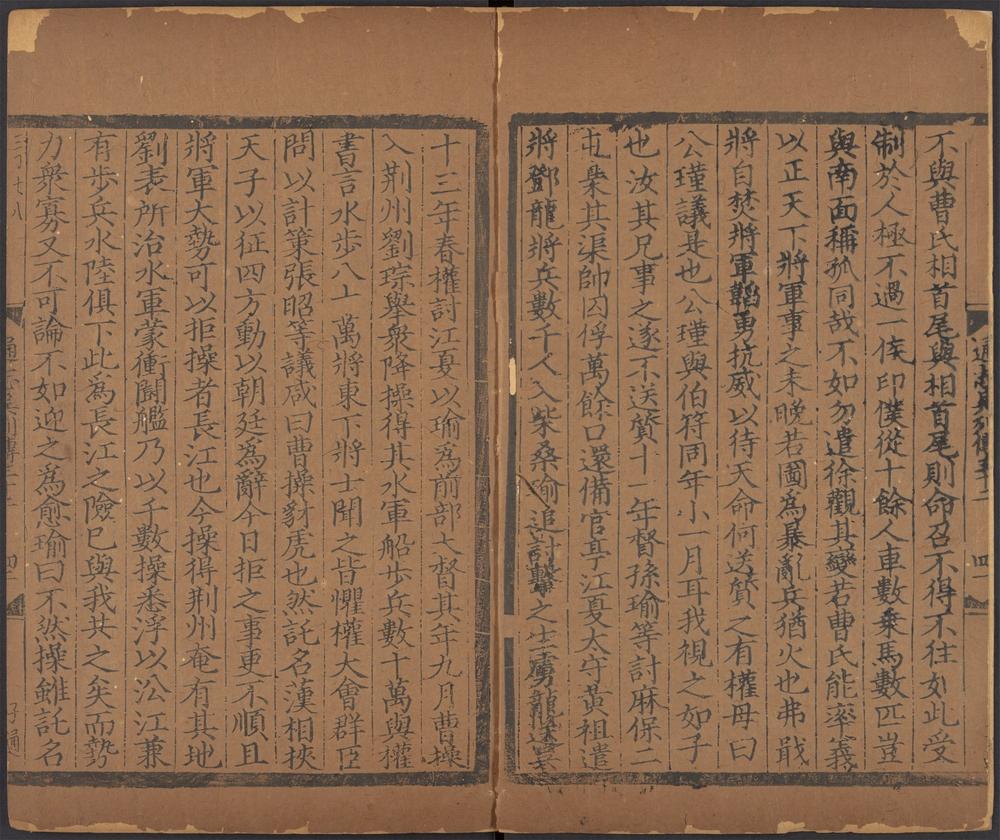 不與曹氏相首尾與相首尾則命召不得不往如此受
制於人極不過一侯印僕從十餘人車數乗馬數匹豈
與南面稱孤同哉不如勿遣徐觀其變若曹氏能率義
以正天下將軍事之未晚若圖爲暴亂兵猶火也弗戢
將自焚將軍韜勇抗威以待天命何送質之有權母曰
公瑾議是也公瑾與伯符同年小一月耳我視之如子
也汝其兄事之遂不送質十一年督孫瑜等討麻保二
屯梟其渠帥囚俘萬餘口還備官亭江夏太守黃祖遣
將鄧龍將兵數千人入柴桑瑜追討擊之生虜龍送吳
十三年春權討江夏以瑜爲前部大督其年九月曹操
入荆州劉琮舉衆降操得其水軍船步兵數十萬與權
書言水步八十萬將東下將士聞之皆懼權大會群臣
問以計策張昭等議咸曰曹操豺虎也然託名漢相挾
天子以征四方動以朝廷爲辭今日拒之事更不順且
將軍大勢可以拒操者長江也今操得荆州奄有其地
劉表所治水軍蒙衝鬭艦乃以千數操悉浮以沿江兼
有步兵水陸俱下此爲長江之險已與我共之矣而勢
力衆寡又不可論不如迎之爲愈瑜曰不然操雖託名